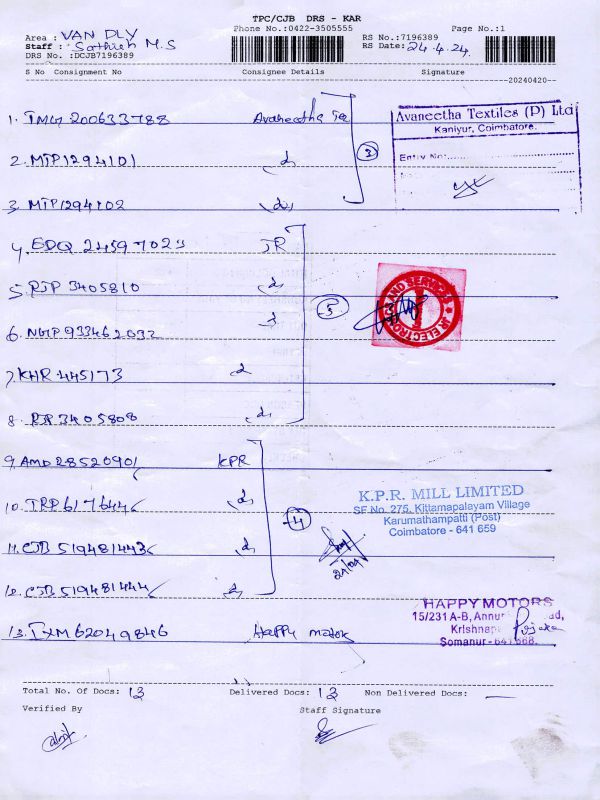 TPC/CJB DRS - KAR
Phone No.:0422-3505555
Page No.:1
Area : VAN DLY
RS No.:7196389
Staff : Sathish M.S
RS Date: 24.4.24
DRS No. :DCJB7196389
S No Consignment No Consignee Details Signature
20240420
1. TMG 200633788 Avaneetha Tex
2. MTP1294101 do
3. MTP1294102 do
3
Avaneetha Textiles (P) Ltd
Kaniyur, Coimbatore.
Entry No:
4. EDQ 24597023 JR
5. RTP 3405810 do
6. NGTP 933462032 do
7. KHR 445173 do
8. RTP 3405808 do
5
JR ELECTRONICS AND SERVICES
9. AMD 28520901 KPR
10. TRP 6176446 do
11. CJB 519481443 do
12. CJB 519481444 do
4
K.P.R. MILL LIMITED
SF No. 275, Kittamapalayam Village
Karumathampatti (Post)
Coimbatore - 641 659
24/04
13. TXM 62049846 Happy motors
HAPPY MOTORS
15/231 A-B, Annur
Somanur - 641 668.
Total No. Of Docs: 13 Delivered Docs: 13 Non Delivered Docs: —
Verified By Staff Signature